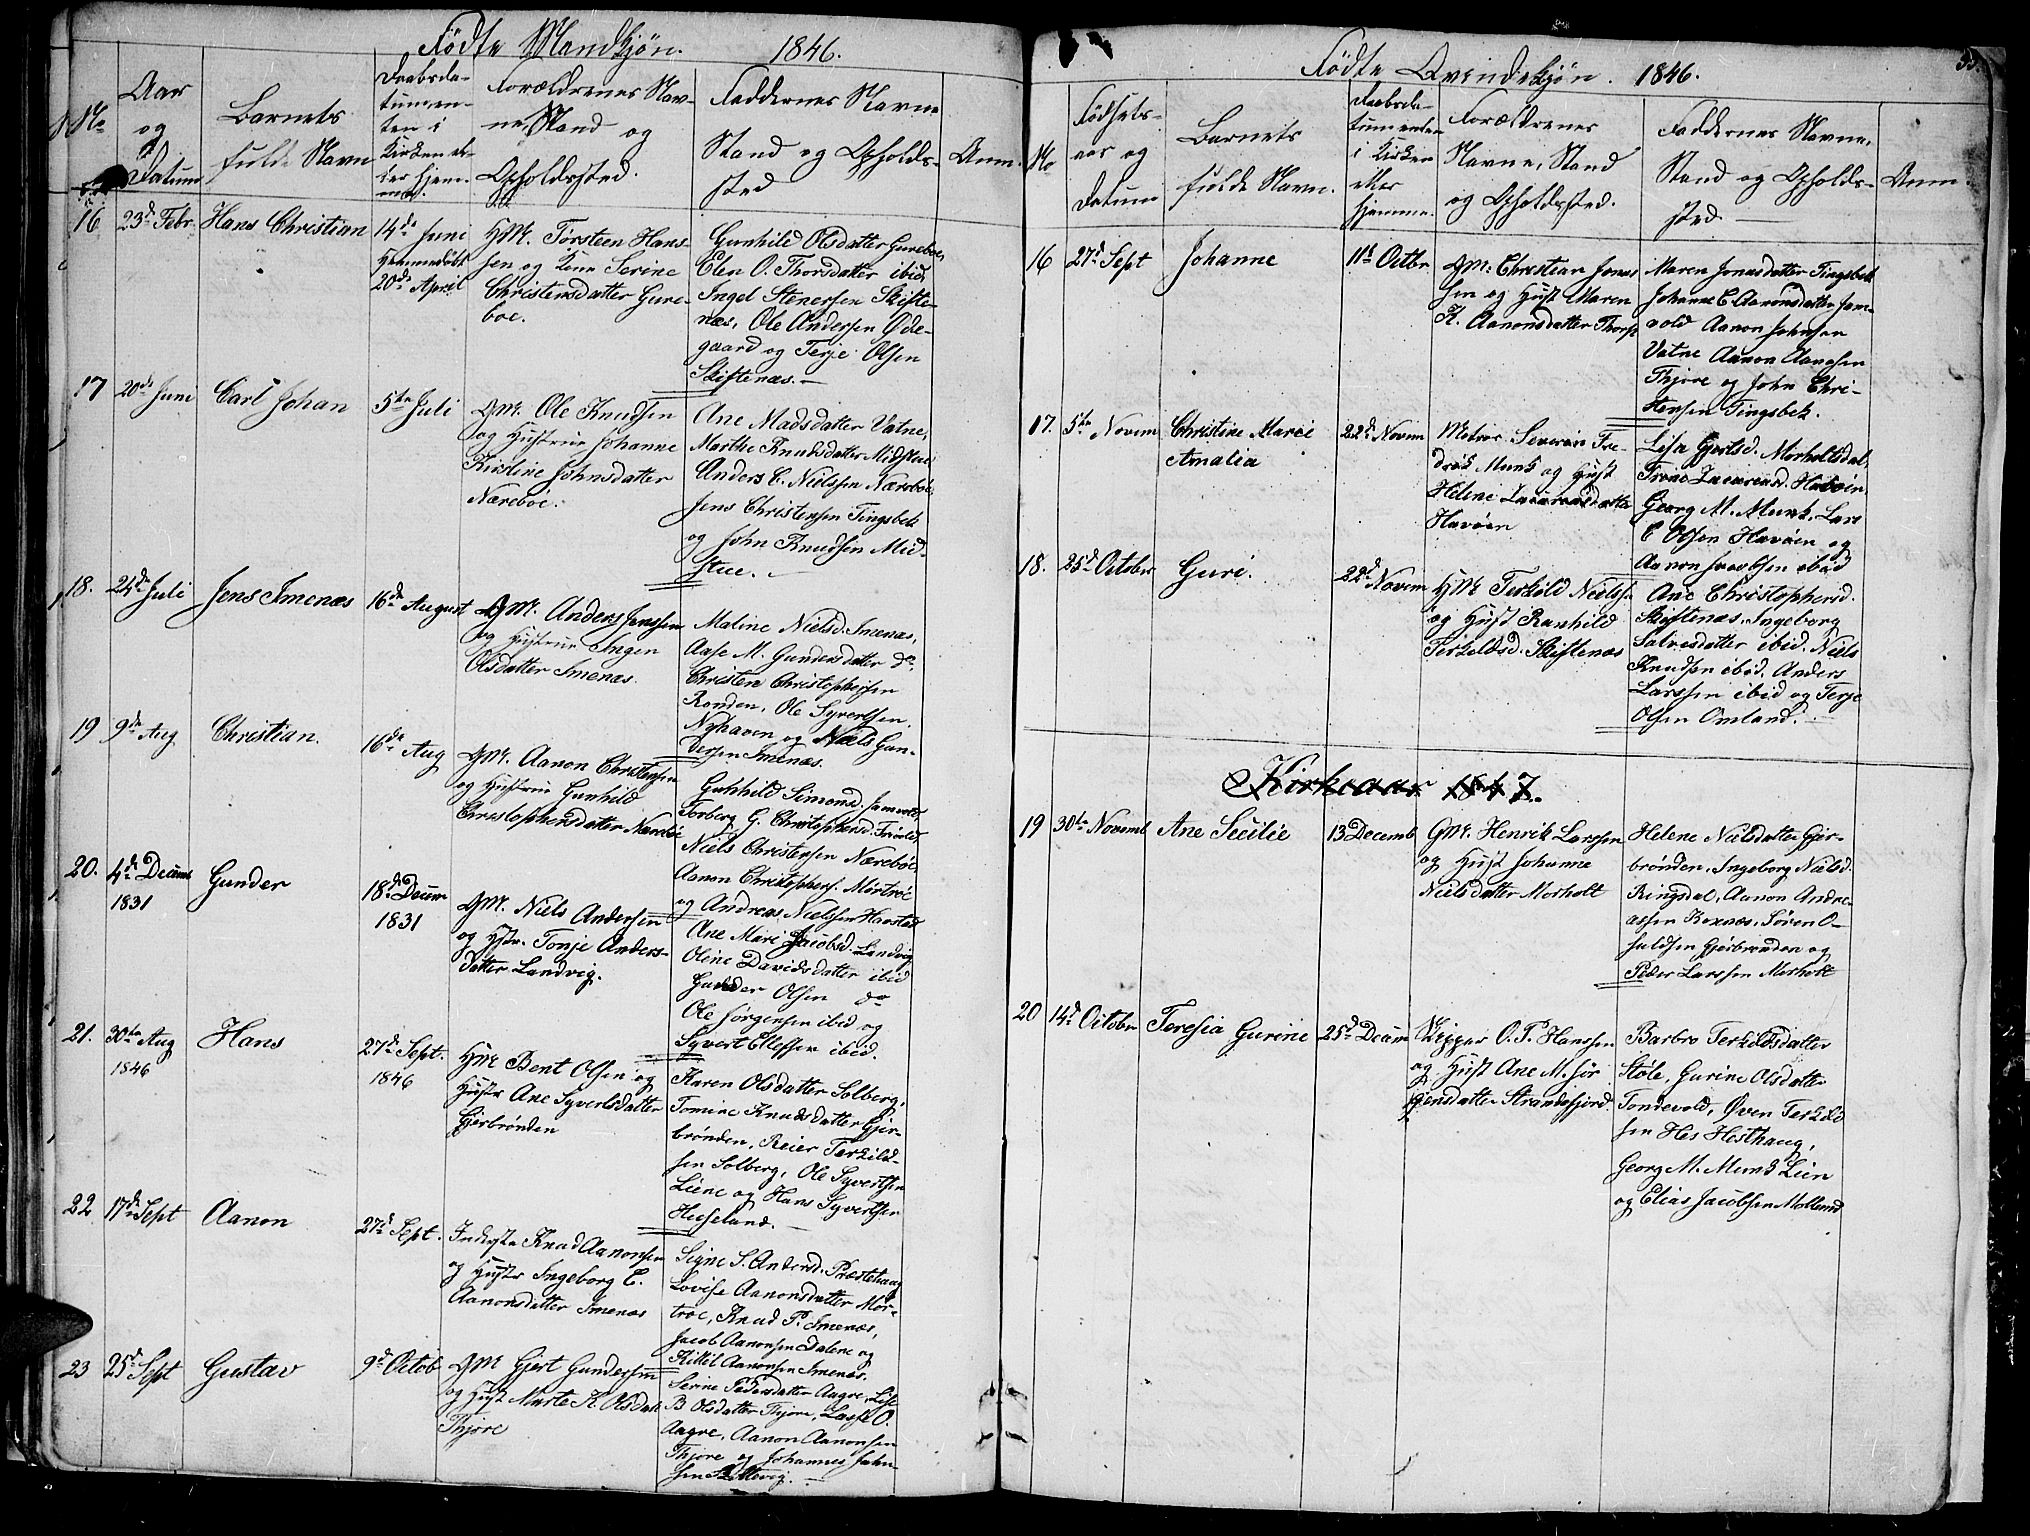 Fødte Mandkjøn. 1846.
No
Aar
og
Datum
Barnets
fulde Navn
Daabsda-
tumen-
ten i
Kirken el-
ler hjem-
me.
Forældrenes Nav-
ne, Stand og
Opholdssted.
Faddernes Navne
Stand og Opholds-
sted
Anm.
16
23d Febr.
Hans Christian
14de Juni
Hjemmedøbt
20de April
GM. Tørsteen Hans-
sen og Kone Serine
Christensdatter Gure-
boe.
Gunhild Olsdatter Gureboe,
Elen O. Thorsdatter ibid,
Ingel Stenersen Skifte-
næs, Ole Andersen Øde-
gaard og Terje Olsen
Skiftenæs.—
17
20de Juni
Carl Johan
5te Juli
GM. Ole Knudsen
og Hustrue Johanne
Kirstine Johnsdatter
Nærebøe.
Ane Madsdatter Vatne,
Marthe Knudsdatter Midstue
Anders C. Nielssen Nærebøe,
Jens Christensen Tingsbek
og John Knudsen Mid-
stue.—
18.
24de Juli
Jens Imenæs
16de August
GM. Anders Jenssen
og Hustrue Ingen
Olsdatter Imenæs.
Maline Nielsd. Imenæs,
Aase M. Gundersdatter do.
Christen Christophersen
Ronden, Ole Syvertsen
Nyhaven og Niels Gun-
dersen Imenæs.
19
9de Aug
Christian.
16de Aug
GM. Aanon Christensen
og Hustrue Gunhild
Christophersdatter Nærebøe
Gunhild Simonsd. Jamvold,
Torberg G. Christophersd. Trivold,
Niels Christensen Nærebøe,
Aanon Christophers. Mørtroe
og Andreas Nielssen Haavstad
20.
4de Decemb
1831
Gunder
18de Decem
1831
GM. Niels Andersen
og Hstr. Tonje Anders-
datter Landvig.
Ane Mari Jacobsd. Landvig
Oline Davidsdatter ibid
Gunder Olsen do
Ole Jørgensen ibid og
Syvert Ellefsen ibid.
21.
30te Aug
1846
Hans
27de Sept.
1846
HM Bent Olsen og
Hustr Ane Syvertsdatter
Gjerbrønden
Karen Olsdatter Solberg,
Tomine Knudsdatter Gjer-
brønden, Reier Terkild-
sen Solberg, Ole Syvertsen
Liene og Hans Syvertsen
Heeseland.—
22.
17de Sept
Aanon
27d Sept.
Inderste Knud Aanonsen
og Hustr Ingeborg C.
Aanonsdatter Imenæs
Signe S. Andersd. Præstehaug
Lovise Aanonsdatter Mør-
troe, Knud P. Imenæs,
Jacob Aanonsen Dalene og
Kittil Aanonsen Imenæs.
23
25d Sept
Gustav
9d Octob
GM Gjert Gundersen
og Hust Marte K. Olsdatt
Thjore
Serine Pedersdatter Aagre, Lise
B Olsdatter Thjore, Lasse O.
Aagre, Aanon Aanonsen
Thjore og Johannes John-
sen Kittevig.—
Fødte Qvindekjøn. 1846.
35.
No
Fødsels-
aar og
Datum
Barnets
fulde Navn.
Daabsda-
tumenten
i Kirken
eller
hjemme.
Forældrenes
Navne, Stand
og Opholdssted.
Faddernes Navne,
Stand og Opholds-
sted.—
Anm.
16
27d Sept
Johanne
11te Octbr
GM. Christian Jons
sen og Hust Maren
K. Aanonsdatter Thorp
Maren Jonasdatter Tingsbek
Johanne C Aanonsdatter Jam-
vold Aanon Johnsen
Vatne Aanon Aanonsen
Thjore og John Chri-
stensen Tingsbek.
17.
5te Novem
Christine Marie
Amalia
22d Novem
Matros Severin Fre-
drik Munk og Hust
Helene Zacariasdatter
Havøen
Lisa Gjertsd. Morholtsdal,
Trine Zacariasd. Havøen
Georg M. Munk, Lars
C Olsen Havøen og
Aanon Jacobsen ibid
18.
25d October
Guri.
22d Novem
HM Terkild Nielsse
og Hust Ranhild
Terkeldsd. Skiftenæs
Ane Christophersd.
Skiftenæs, Ingeborg
Salvesdatter ibid. Niels
Knudsen ibid. Anders
Larssen ibid og Terje
Olsen Omland.—
Kirkeaar 1847.
19
30te Novemb
Ane Secilie
13 Decemb
GM. Henrik Larssen
og Hust Johanne
Nielsdatter Morholt
Helene Nielsdatter Gjer-
brønden, Ingeborg Nielsd.
Ringdal, Aanon Andre-
assen Roxnæs, Søren O-
suldsen Gjerbrønden og
Peder Larssen Morholt
20
14d October
Teresia Gurine
25d Decem
Skipper O. P. Hanssen
og Hust Ane M. Jør
gensdatter Strandefjord.
Barbro Terkildsdatter
Støle, Gurine Olsdatter
Tondevold, Øven Terkild
sen Hes Hesthaug,
Georg M. Munk Lien
og Elias Jacobsen Molland